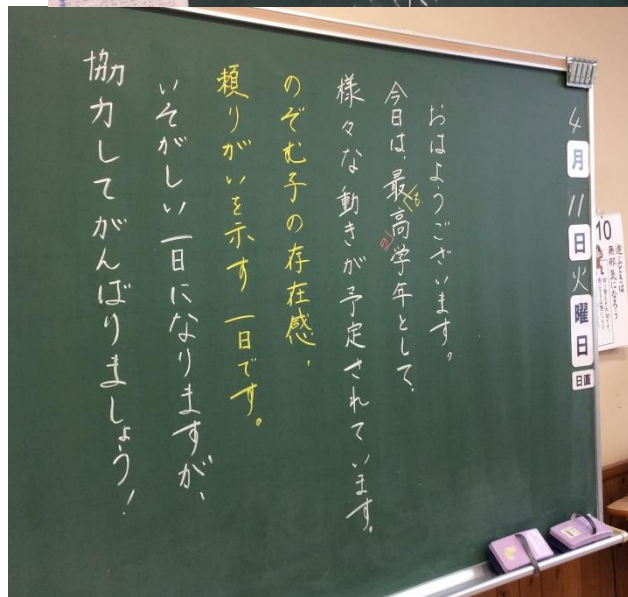 4月11日火曜日
日直
おはようございます。
今日は、最高学年として、
様々な動きが予定されています。
のぞむ子の存在感、
頼りがいを示す一日です。
いそがしい一日になりますが、
協力してがんばりましょう!
10
遊ぶときは
無邪気になろう